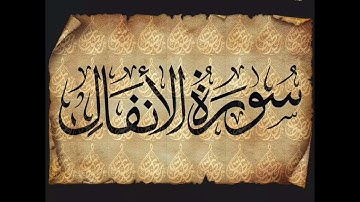 سُورَةُ الأَنفَالِ